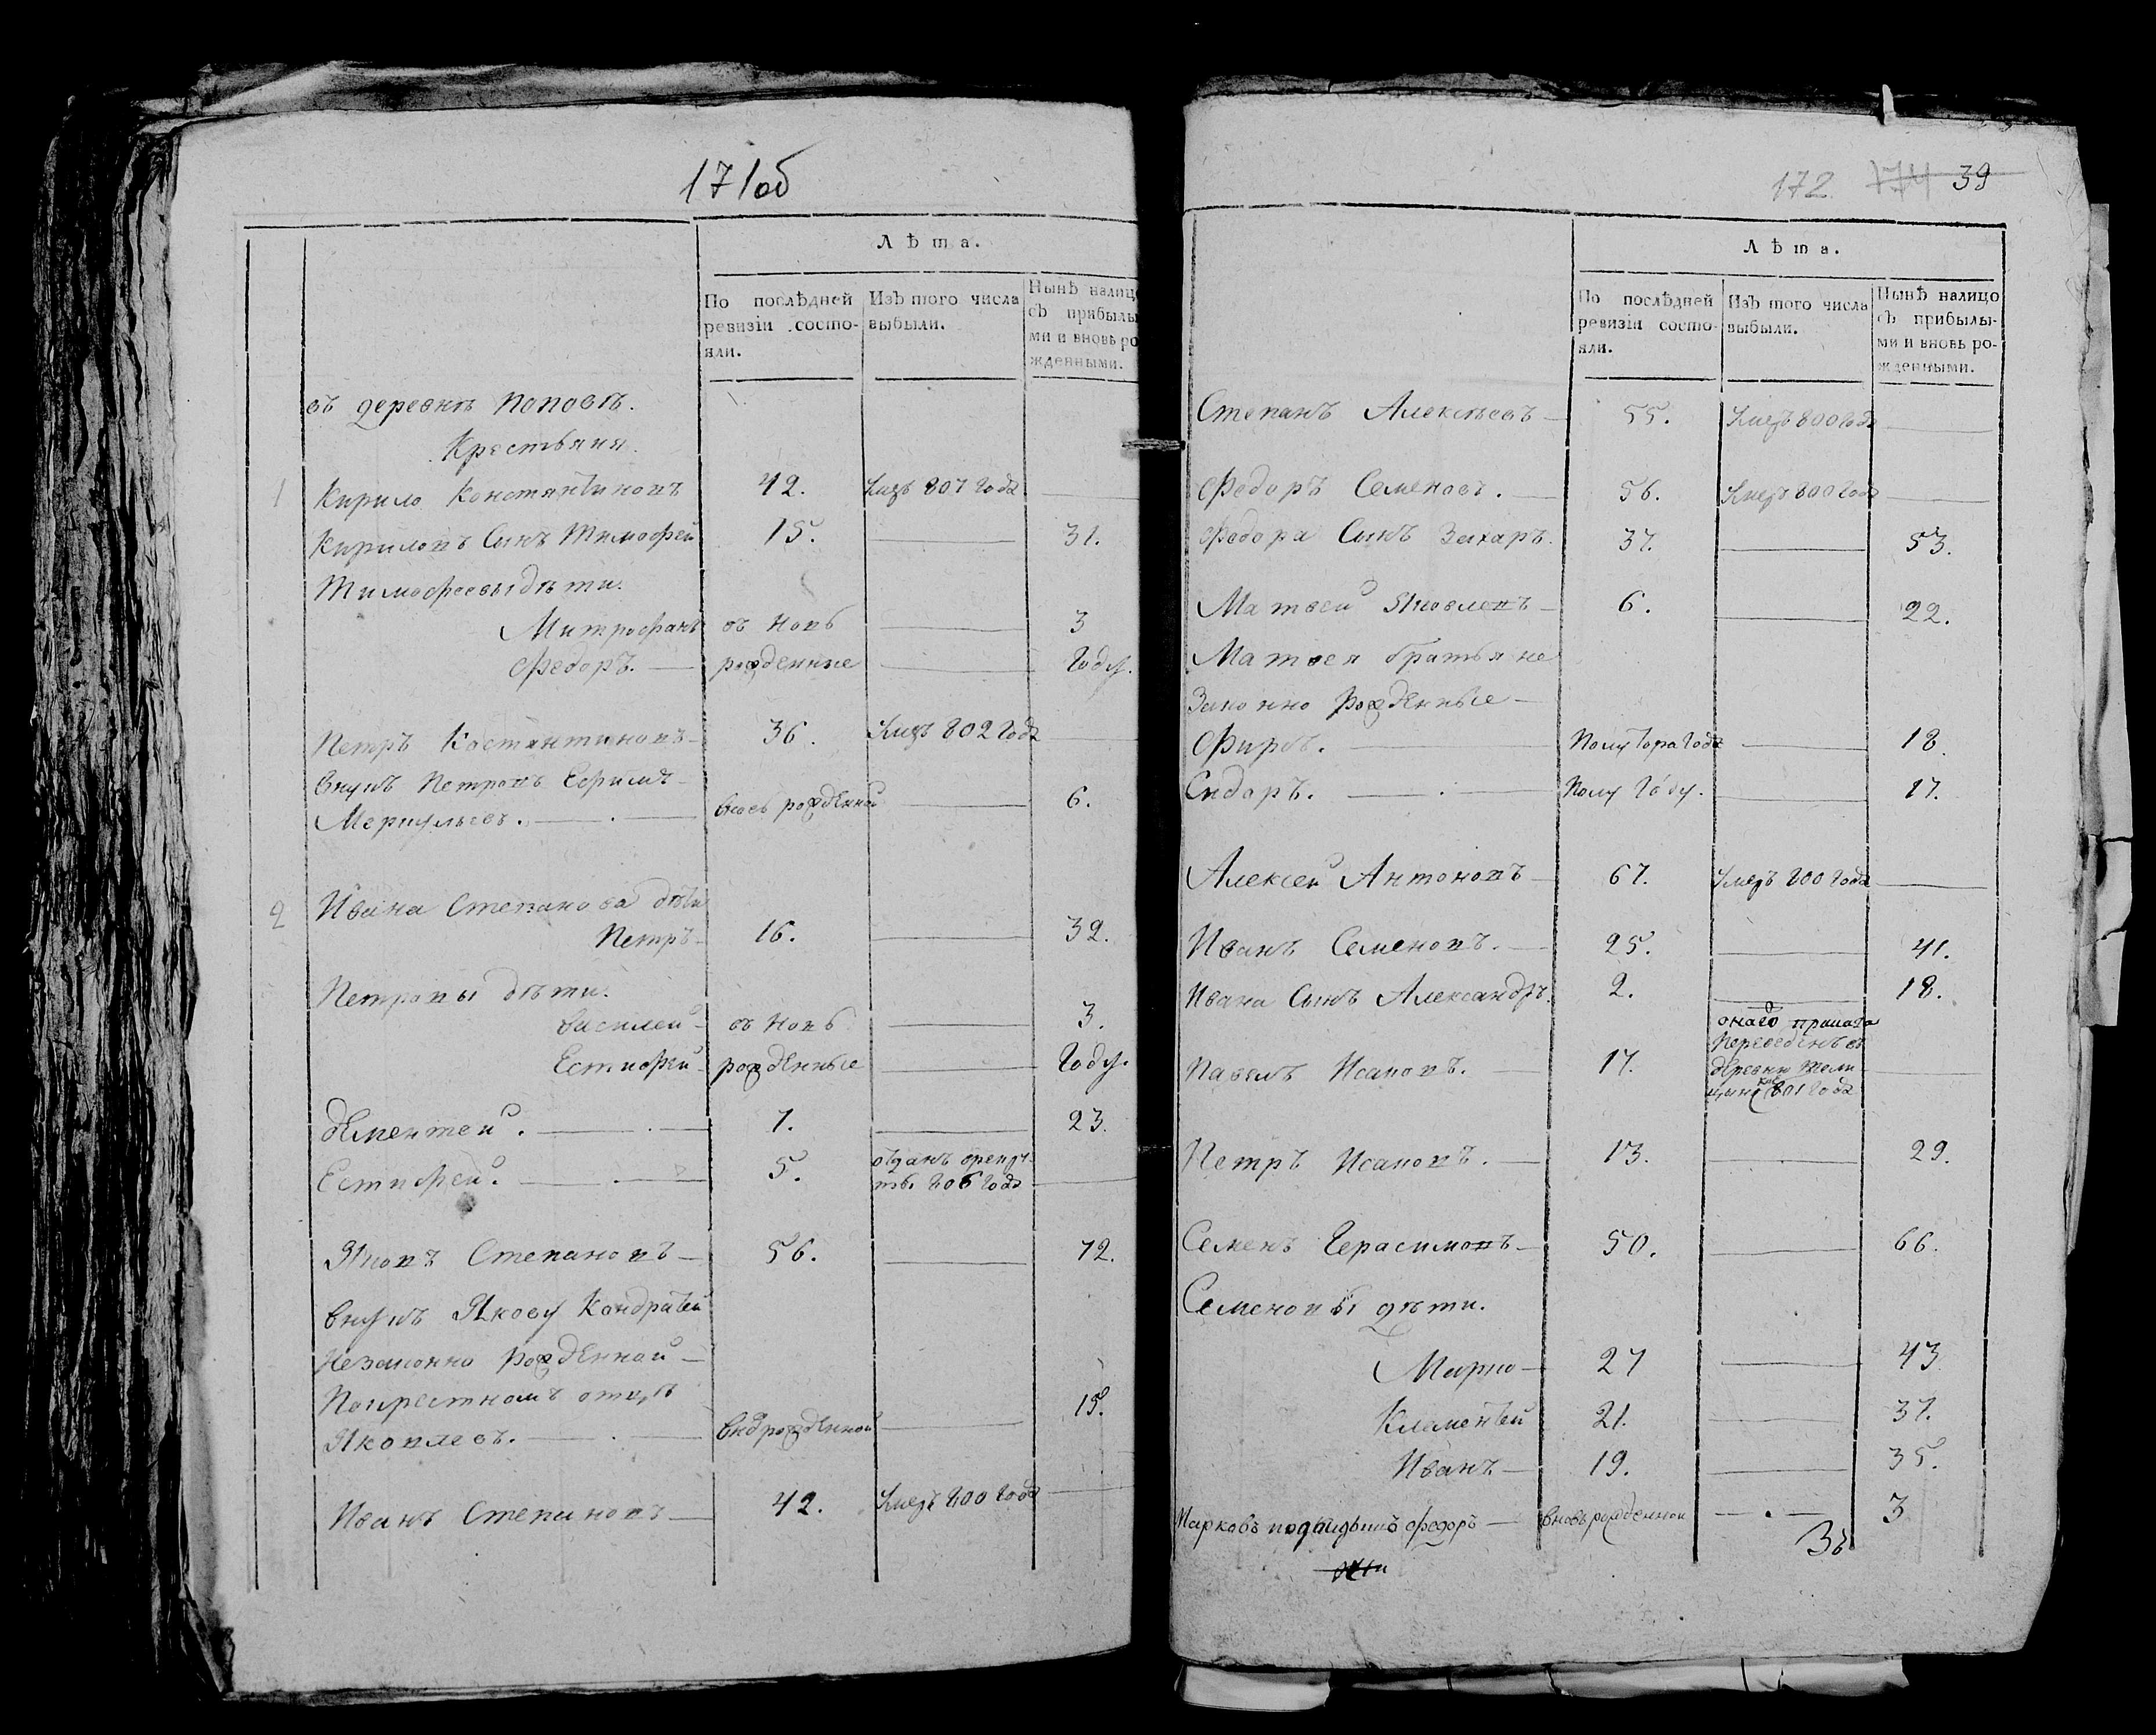 171об
Лѣта.
По послѣдней ревизіи состояли.
Изъ того числа выбыли.
Нынѣ налицо съ прибылыми и вновь рожденными.
въ деревнѣ Поповѣ.
Крестьяня.
1 Кирило Константиновъ 42. Умеръ 807 Года
Кириловъ Сынъ Тимофей 15. 31.
Тимофеевы дѣти.
Митрофанъ въ новѣ 3
Федоръ. рожденные Году.
Петръ Костянтиновъ 36. Умеръ 802 Года
Внукъ Петровъ Ефимъ
Меркульевъ. вновь рожденной 6.
2 Ивана Степанова дѣти
Петръ 16. 32.
Петровы дѣти.
Василей въ новѣ 3.
Естифей рожденные Году.
Дементей. 7. 23.
Естифей. 5. отданъ 806 Года
Яковъ Степановъ 56. 72.
Внукъ Якову Кондратей
Незаконно рожденной
Покрестномъ отцѣ
Яковлевъ. рожденной 15.
Иванъ Степановъ 42. Умеръ 800 Года
172 174 39
Лѣта.
По послѣдней ревизіи состояли.
Изъ того числа выбыли.
Нынѣ налицо съ прибылыми и вновь рожденными.
Степанъ Алексѣевъ 55. Умеръ 800 Года
Федоръ Семеновъ. 56. Умеръ 800 Года
Федора Сынъ Захаръ. 37. 53.
Матвей Яковлевъ 6. 22.
Матвея братья не
Законно рожденные
Фирсъ. Полутора Года 18.
Сидоръ. Полу Году. 17.
Алексей Антоновъ 67. Умеръ 800 Года
Иванъ Семеновъ. 25. 41.
Ивана Сынъ Александръ. 2. 18.
Павелъ Исаковъ. 17. онаго приказа Переведенъ въ деревню 801 Года
Петръ Исаковъ. 13. 29.
Семенъ Герасимовъ 50. 66.
Семеновы дѣти.
Марко 27 43
Климентей 21. 37.
Иванъ 19. 35.
Марковъ Федоръ вновь рожденной 3